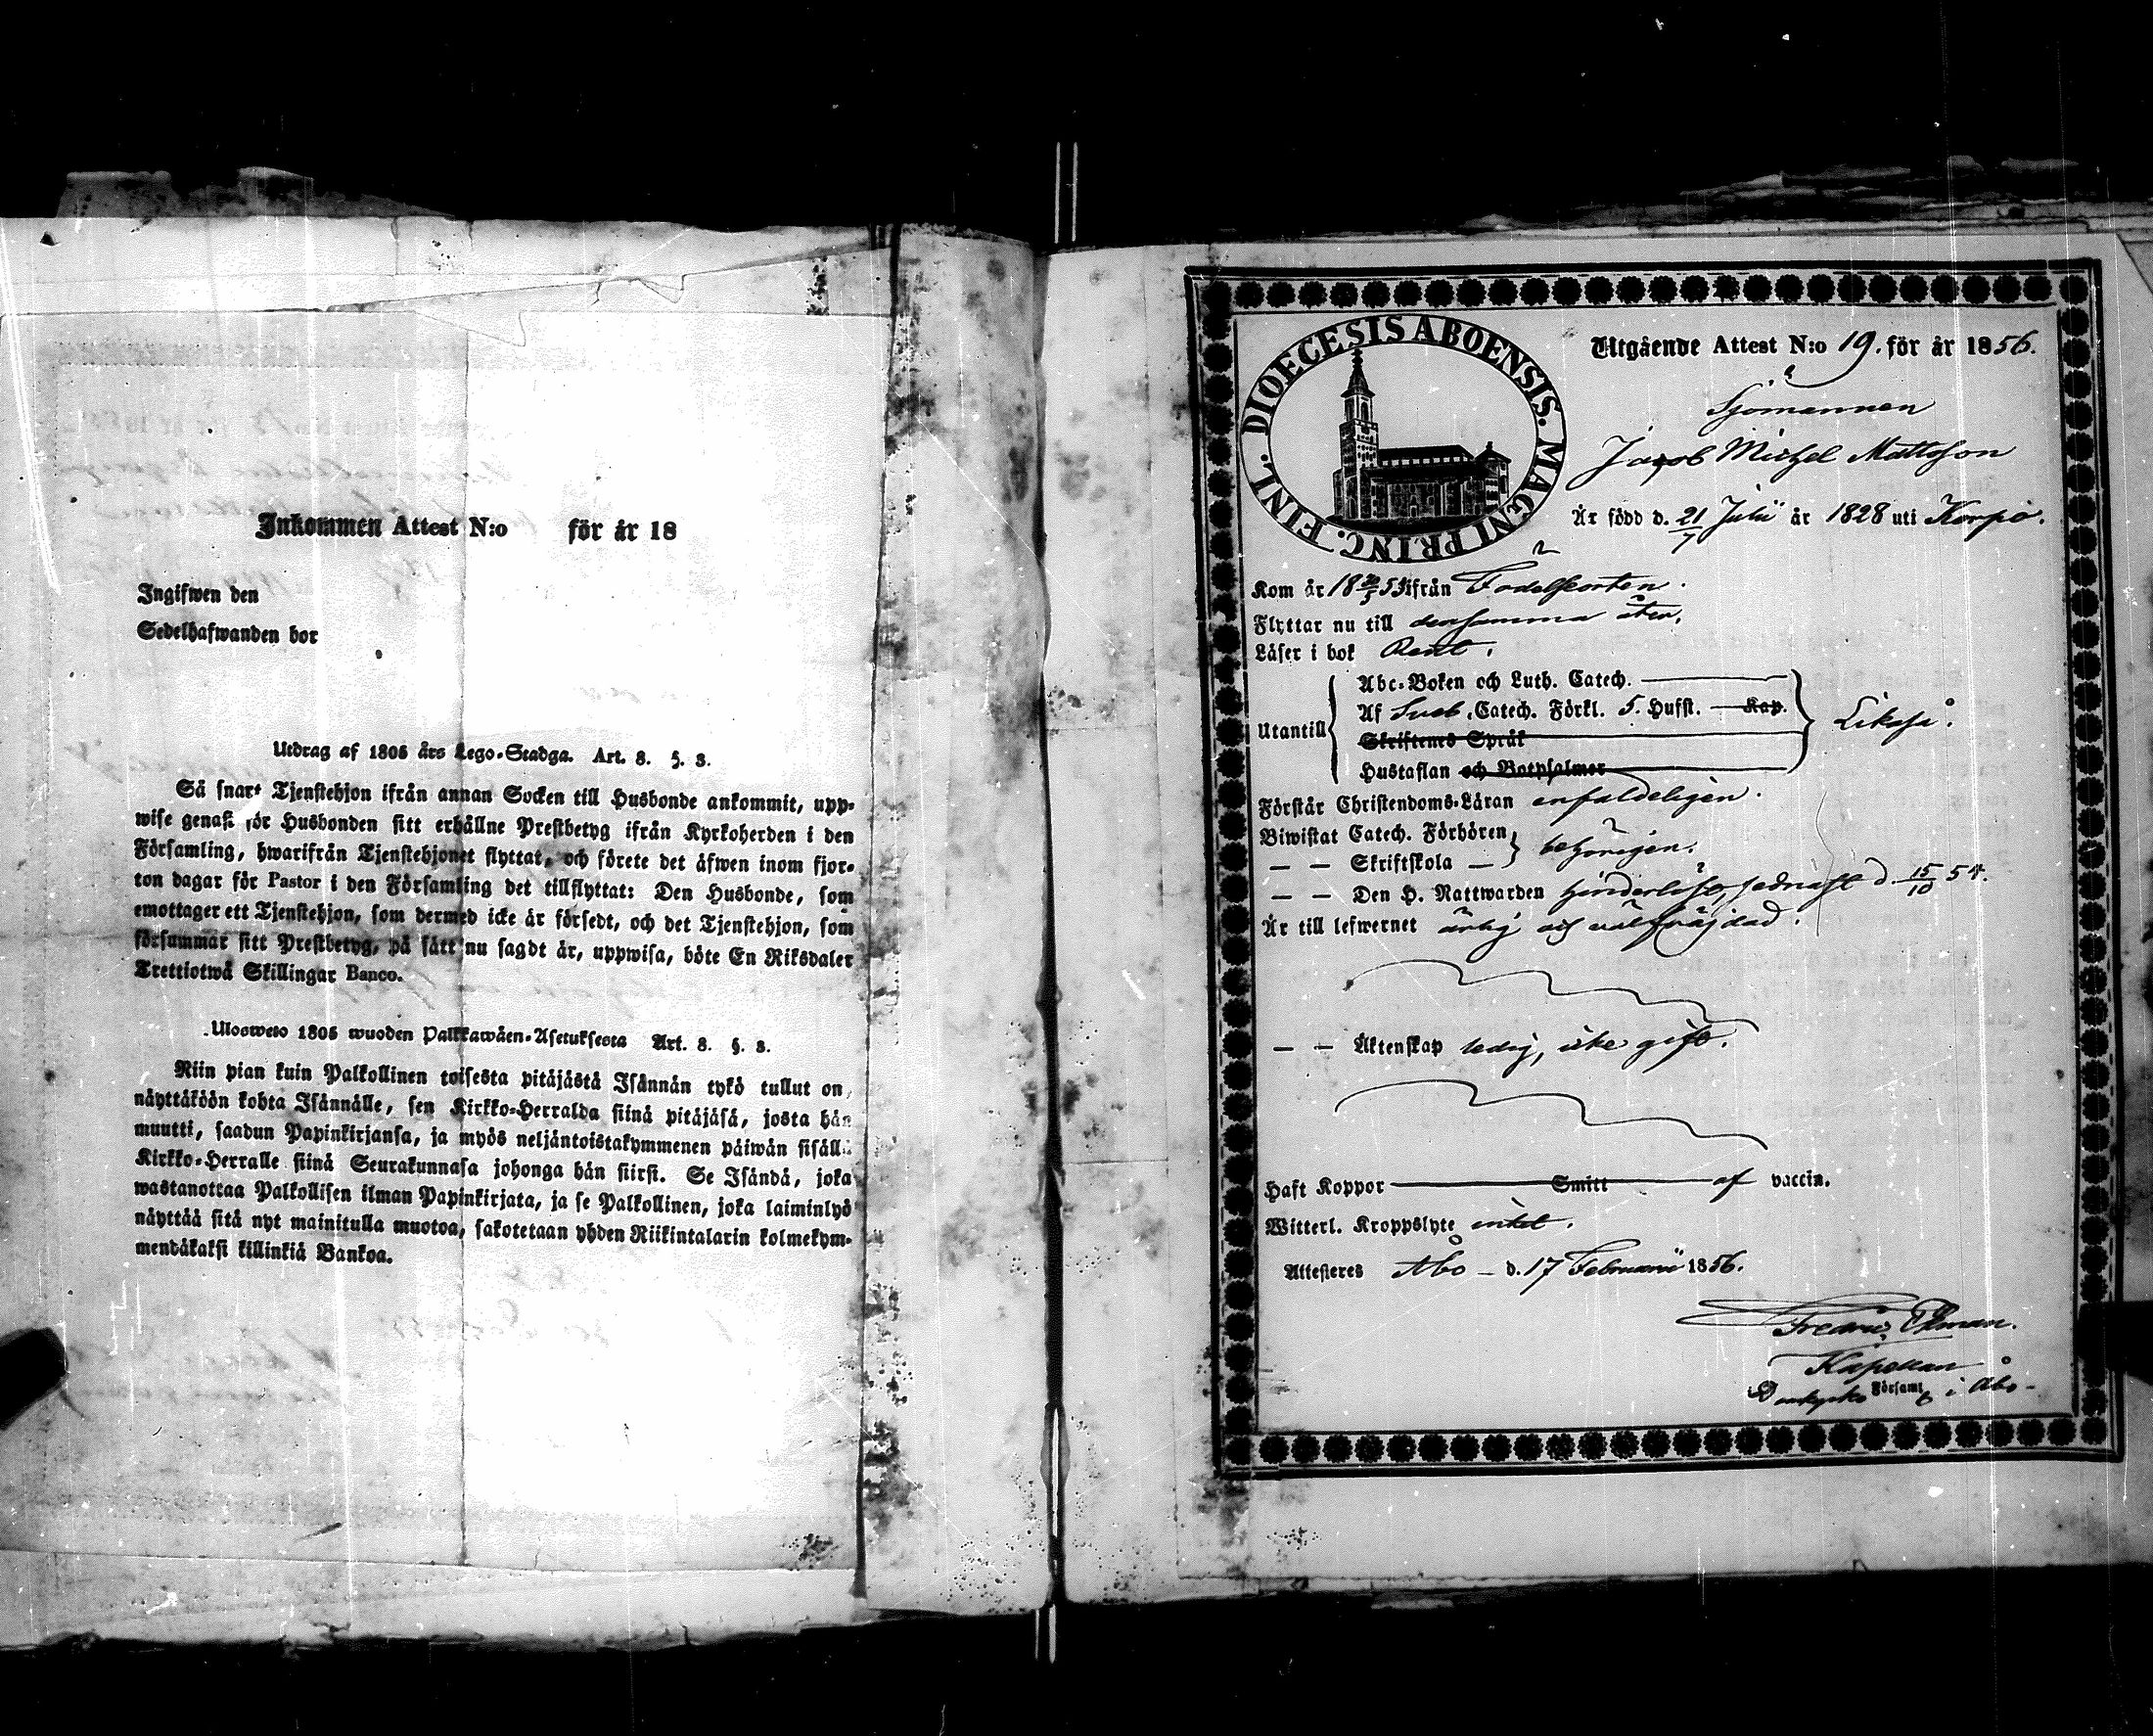 Inkommen Attest N:o för år 18
Ingifwen den
Sedelhafwanden bor
Utdrag af 1805 års Lego-Stadga. Art. 8. §. 3.
Så snart Tjenstehjon ifrån annan Socken till Husbonde ankommit, upp-
wise genast för Husbonden sitt erhållne Prestbetyg ifrån Kyrkoherden i den
Församling, hwarifrån Tjenstehjonet flyttat, och förete det äfwen inom fjor-
ton dagar för Pastor i den Församling det tillflyttat: Den Husbonde, som
emottager ett Tjenstehjon, som dermed icke är försedt, och det Tjenstehjon, som
försummar sitt Prestbetyg, på sätt nu sagdt är, uppwisa, böte En Riksdaler
Trettiotwå Skillingar Banco.
Ulosweto 1805 wuoden Palkkawäen-Asetuksesta Art. 8. §. 3.
Niin pian kuin Palkollinen toisesta pitäjästä Isännän tykö tullut on,
näyttäköön kohta Isännälle, sen Kirkko-Herralda siinä pitäjäsä, josta hän
muutti, saadun Papinkirjansa, ja myös neljäntoistakymmenen päiwän sisällä
Kirkko-Herralle siinä Seurakunnasa johonga hän siirsi. Se Isändä, joka
wastanottaa Palkollisen ilman Papinkirjata, ja se Palkollinen, joka laiminlyö
näyttää sitä nyt mainitulla muotoa, sakotetaan yhden Riikintalarin kolmekym-
mendäkaksi killinkiä Bankoa.
DIOECESIS ABOENSIS. MAGNI PRINC. FINL.
Utgående Attest N:o 19. för år 1856.
Sjömannen
Jacob Michel Mattsson
Är född d. 21/7 Julii år 1828 uti Korpo.
Kom år 18 53 ifrån Födelseorten.
Flyttar nu till densamma åter.
Läser i bok Rent.
Utantill
Abc-Boken och Luth. Catech.
Af Sveb. Catech. Förkl. 5. Hufst. Kap.
Skriftenes Språk
Hustaflan och Botpsalmer
Likaså.
Förstår Christendoms-Läran enfaldeligen.
Biwistat Catech. Förhören
— — Skriftskola —
behörigen.
— — Den H. Nattwarden hinderlöst, sednast d. 15/10 54.
Är till lefwernet ärlig och välfräjdad.
— — Äktenskap ledig, icke gift.
Haft Koppor Smitt af vaccin.
Witterl. Kroppslyte intet.
Attesteres Åbo d. 17 Februarii 1856.
Fredric Ekman.
Kapellan
Domkyrko Församl i Åbo